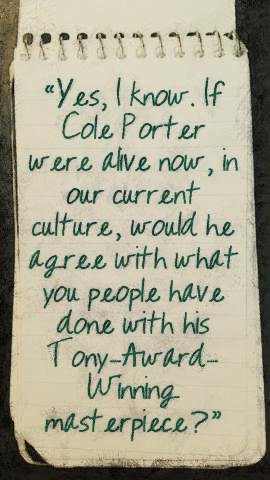 “Yes, I know. If
Cole Porter
were alive now, in
our current
culture, would he
agree with what
you people have
done with his
Tony-Award-
Winning
masterpiece?”